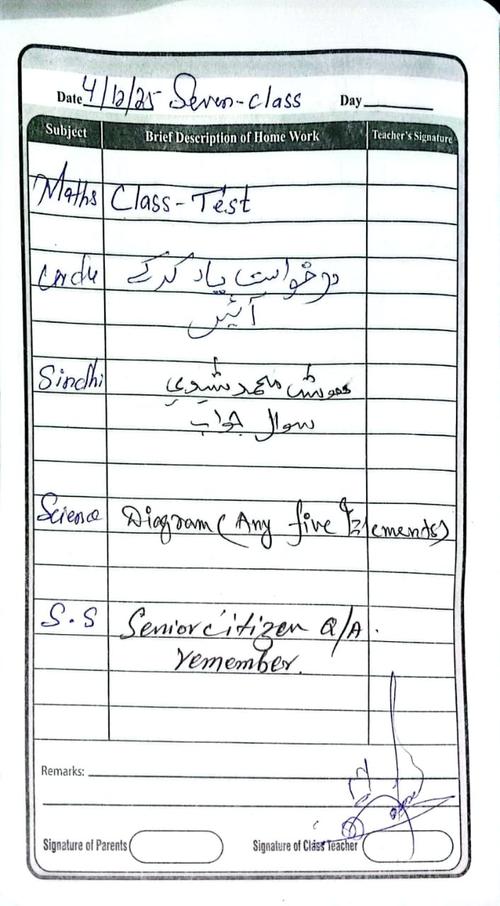 Date 4/12/25 Seven-class Day
Subject Brief Description of Home Work Teacher's Signature
Maths Class-Test
Urdu درخواست یاد کرکے
آئیں
Sindhi هوشو محمد شيدي
سوال جواب
Science Diagram (Any five Elements)
S.S Senior citizen Q/A.
remember.
Remarks:
Signature of Parents Signature of Class Teacher